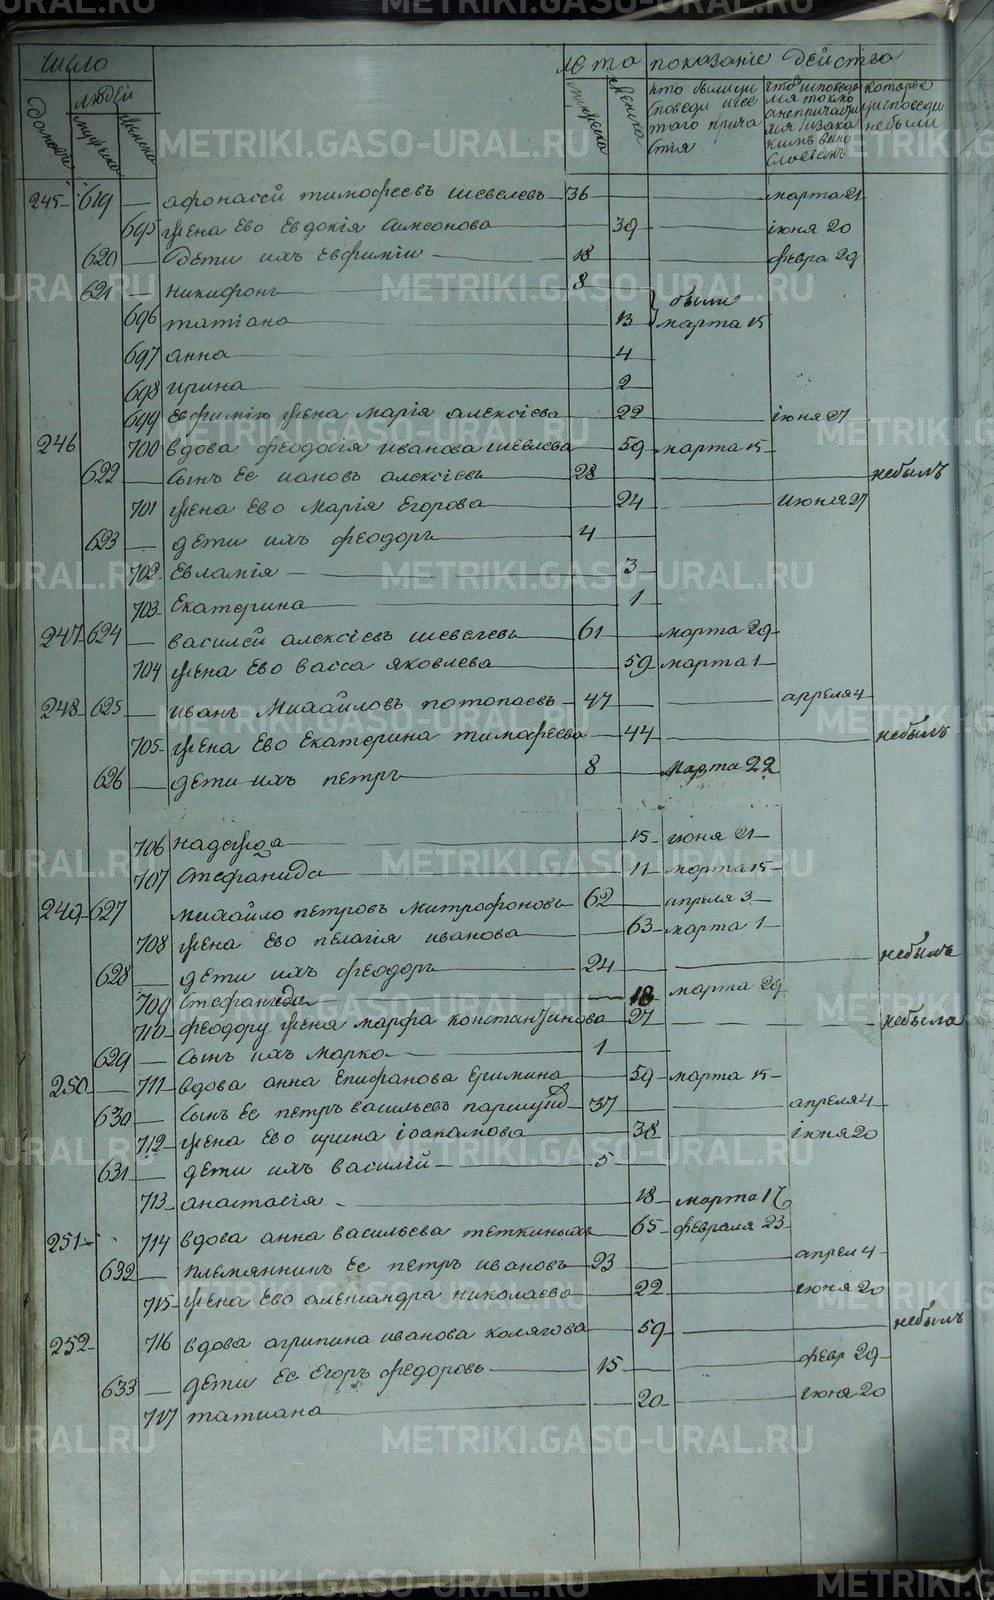 число лета показаніе действа
домовъ людей мужеска женска мужеска женска
кто были и исповеди и свя таго прича стія
кто исповеда лся токмо а не причаща лся и за ка кимъ вино словіемъ
которые у исповеди не были
245 619 афонасей тимофеевъ шевелевъ 36 марта 21
695 жена ево евдокія симсонова 39 іюня 20
620 дети ихъ евфимій 18 февра 29
621 никифоръ 8 были
696 татіана 13 марта 15
697 анна 4
698 ирина 2
699 евфимію жена марія алексіева 22 іюня 27
246 700 вдова феодосія иванова шевелева 59 марта 15
622 сынъ ее иаковъ алексіевъ 28 небылъ
701 жена ево марія егорова 24 июня 27
623 дети ихъ феодоръ 4
702 евлампія 3
703 екатерина 1
247 624 василей алексіевъ шевелевъ 61 марта 29
704 жена ево васса яковлева 59 марта 1
248 625 иванъ михайловъ потопаевъ 47 апреля 4
705 жена ево екатерина тимофеева 44 небылъ
626 дети ихъ петръ 8 марта 22
706 надежда 15 іюня 21
707 стефанида 11 марта 15
249 627 михайло петровъ митрофоновъ 62 апреля 3
708 жена ево пелагія иванова 63 марта 1
628 дети ихъ феодоръ 24 небылъ
709 стефанида 18 марта 29
710 феодору жена марфа константинова 27 небыла
629 сынъ ихъ марко 1
250 711 вдова анна епифанова еримина 59 марта 15
630 сынъ ее петръ васильевъ 37 апреля 4
712 жена ево ирина іоакимова 38 іюня 20
631 дети ихъ василій 5
713 анастасія 18 марта 16
251 714 вдова анна васильева теткиныхъ 65 февраля 23
632 племянникъ ее петръ ивановъ 23 апрел 4
715 жена ево александра николаева 22 іюня 20
252 716 вдова агрипина иванова колягова 59 небылъ
633 дети ее егоръ федоровъ 15 февр 29
717 татиана 20 іюня 20
METRIKI.GASO-URAL.RU